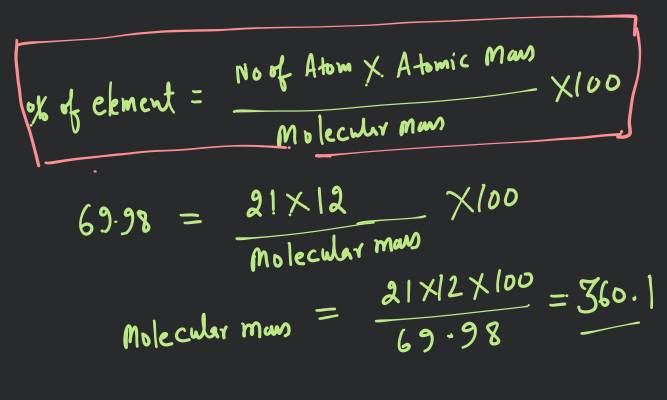 % of element = No of Atom X Atomic Mass / Molecular mass X100
69.98 = 21X12 / Molecular mass X100
Molecular mass = 21X12X100 / 69.98 = 360.1